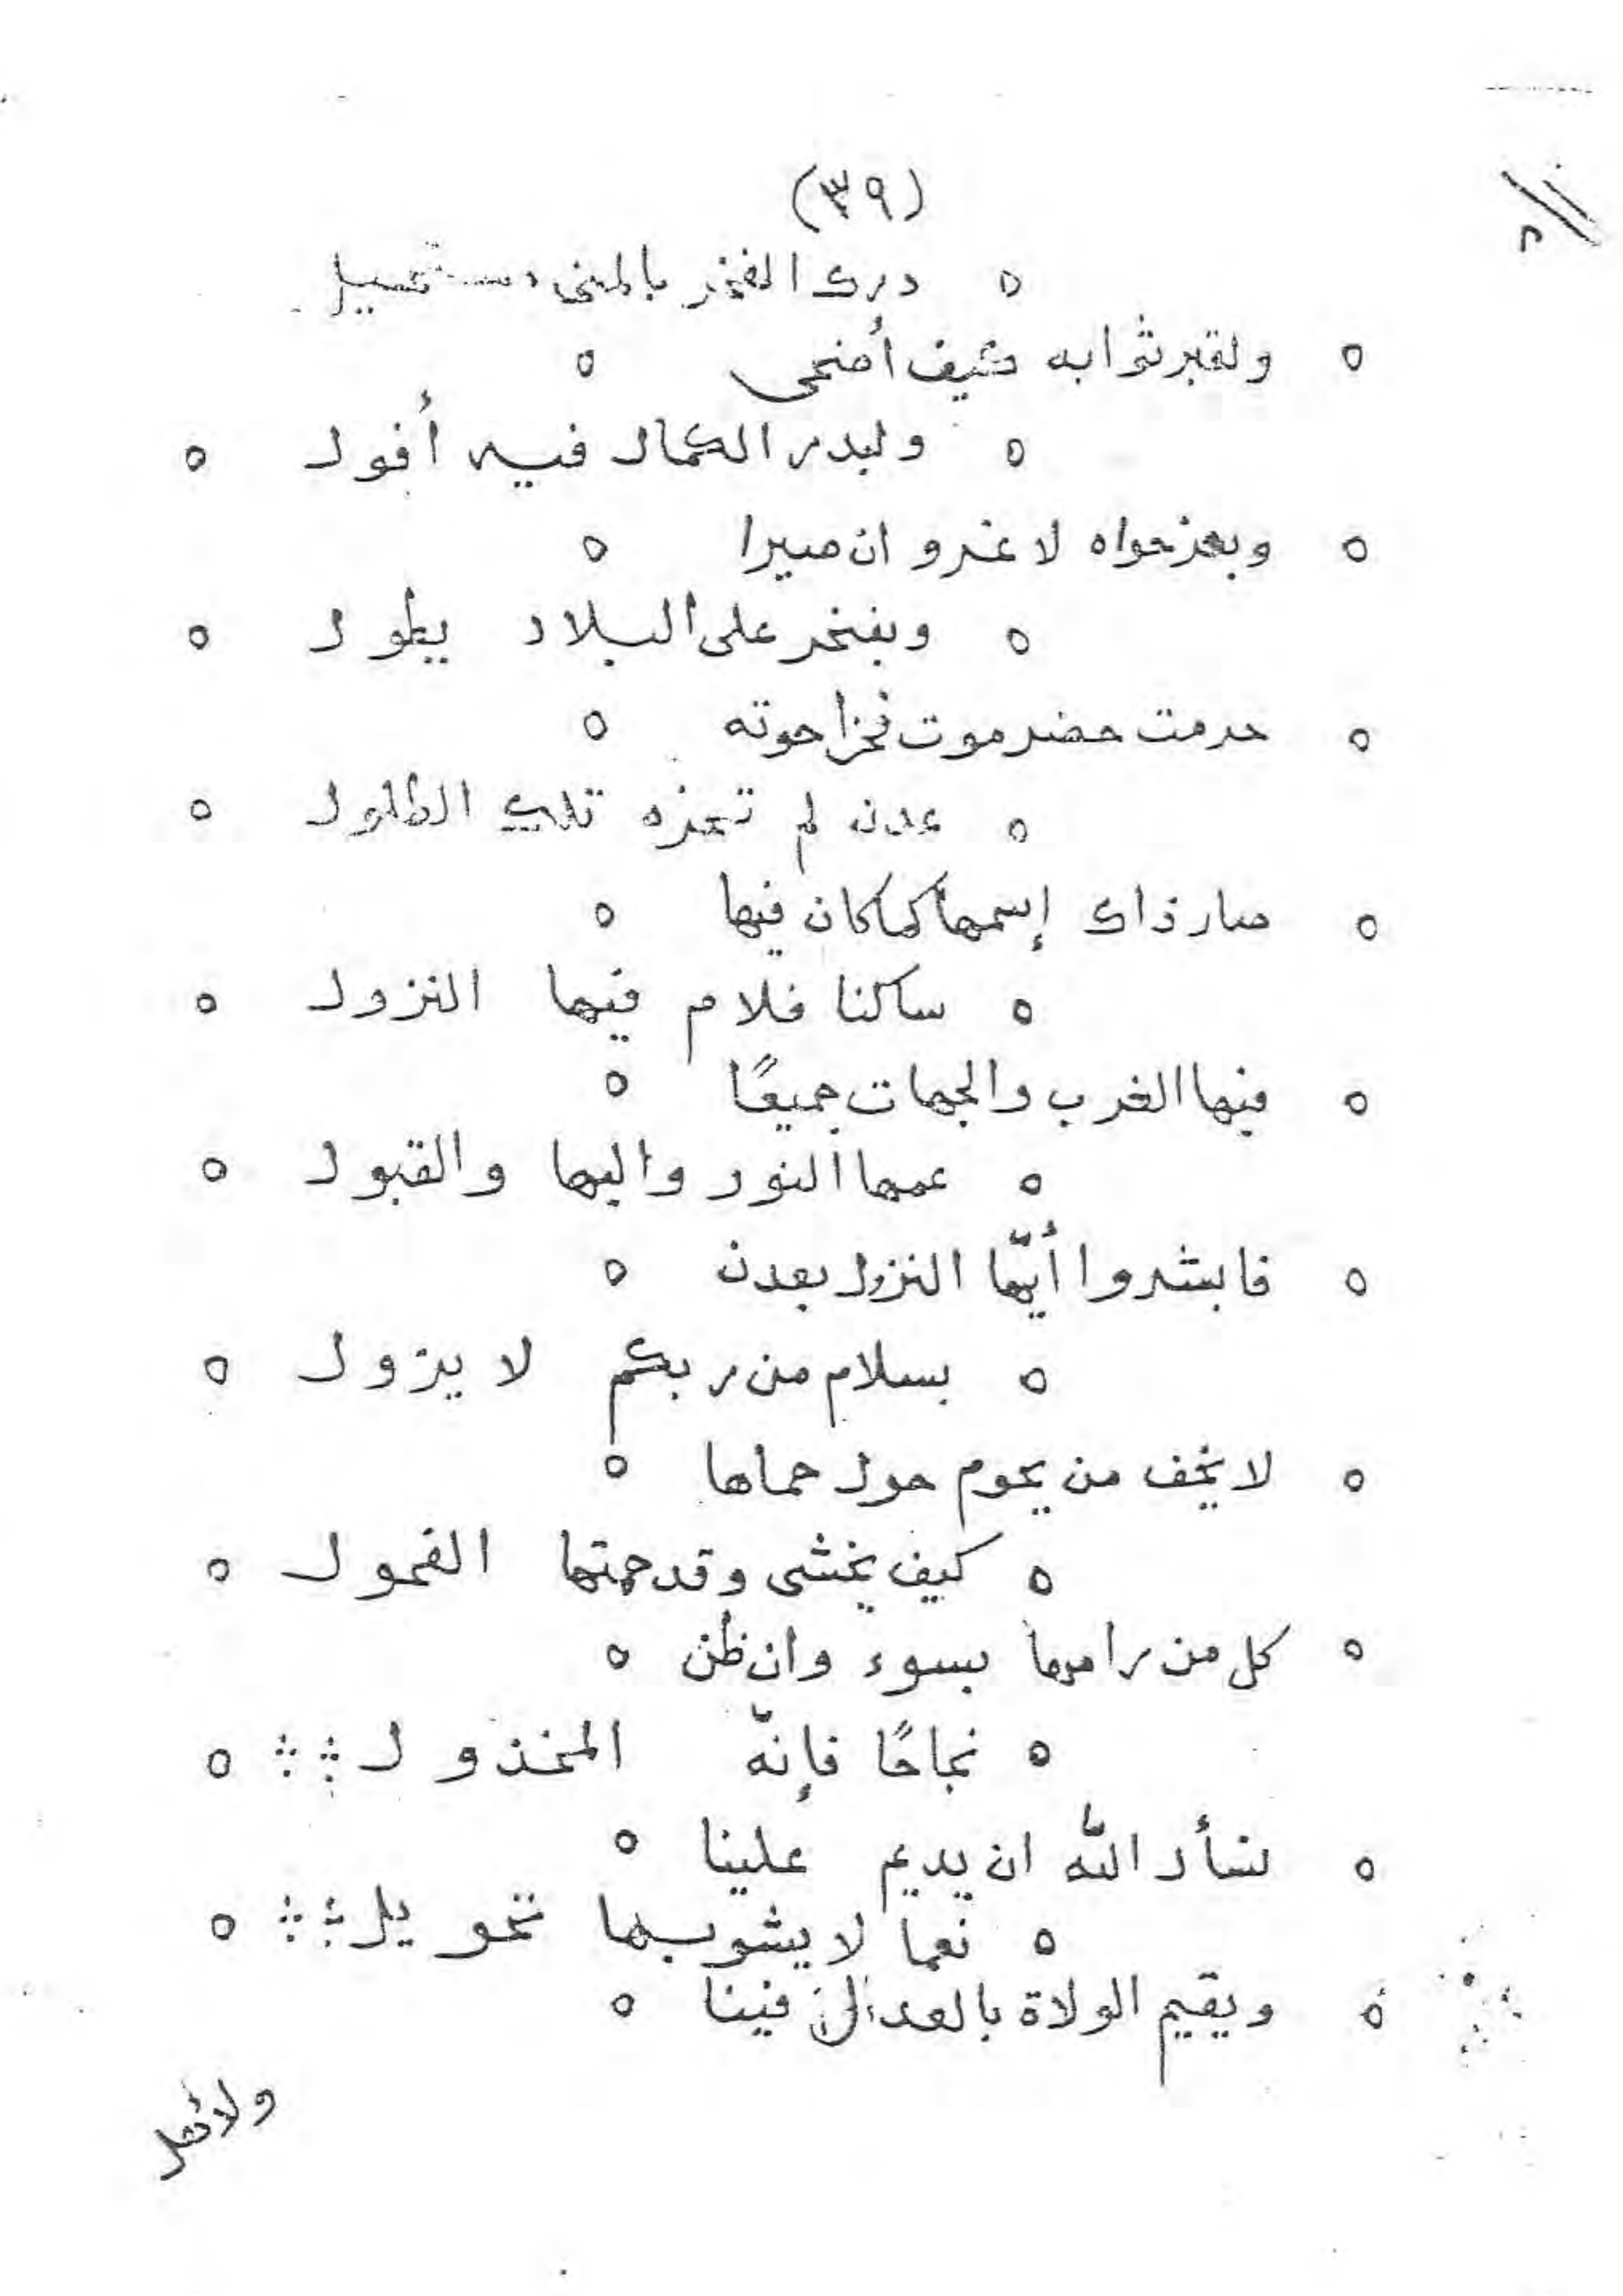 (٣٩)
درك الفخر بالمنى مستحيل
ولقبر ثوا به كيف أضحى
ولبدر الكمال فيه أفول
وبعز حواه لا غرو ان صيرا
وبفخر على البلاد يطول
حرمت حضرموت فخرا حوته
عدن لم تحزه تلك الطلول
صار ذاك إسمها كما كان فيها
ساكنا فلام فيها النزول
فيها الغرب والجهات جميعًا
عمها النور والبها والقبول
فابشروا أيّها النزول بعدن
بسلام من ربكم لا يزول
لا يخف من يحوم حول حماها
كيف يخشى وقد حمتها الفحول
كل من رامها بسوء وان ظن
نجاحًا فإنّه المخذول
نسأل اللّه ان يديم علينا
نعما لا يشوبها تحويل
ويقيم الولاة بالعدل فينا